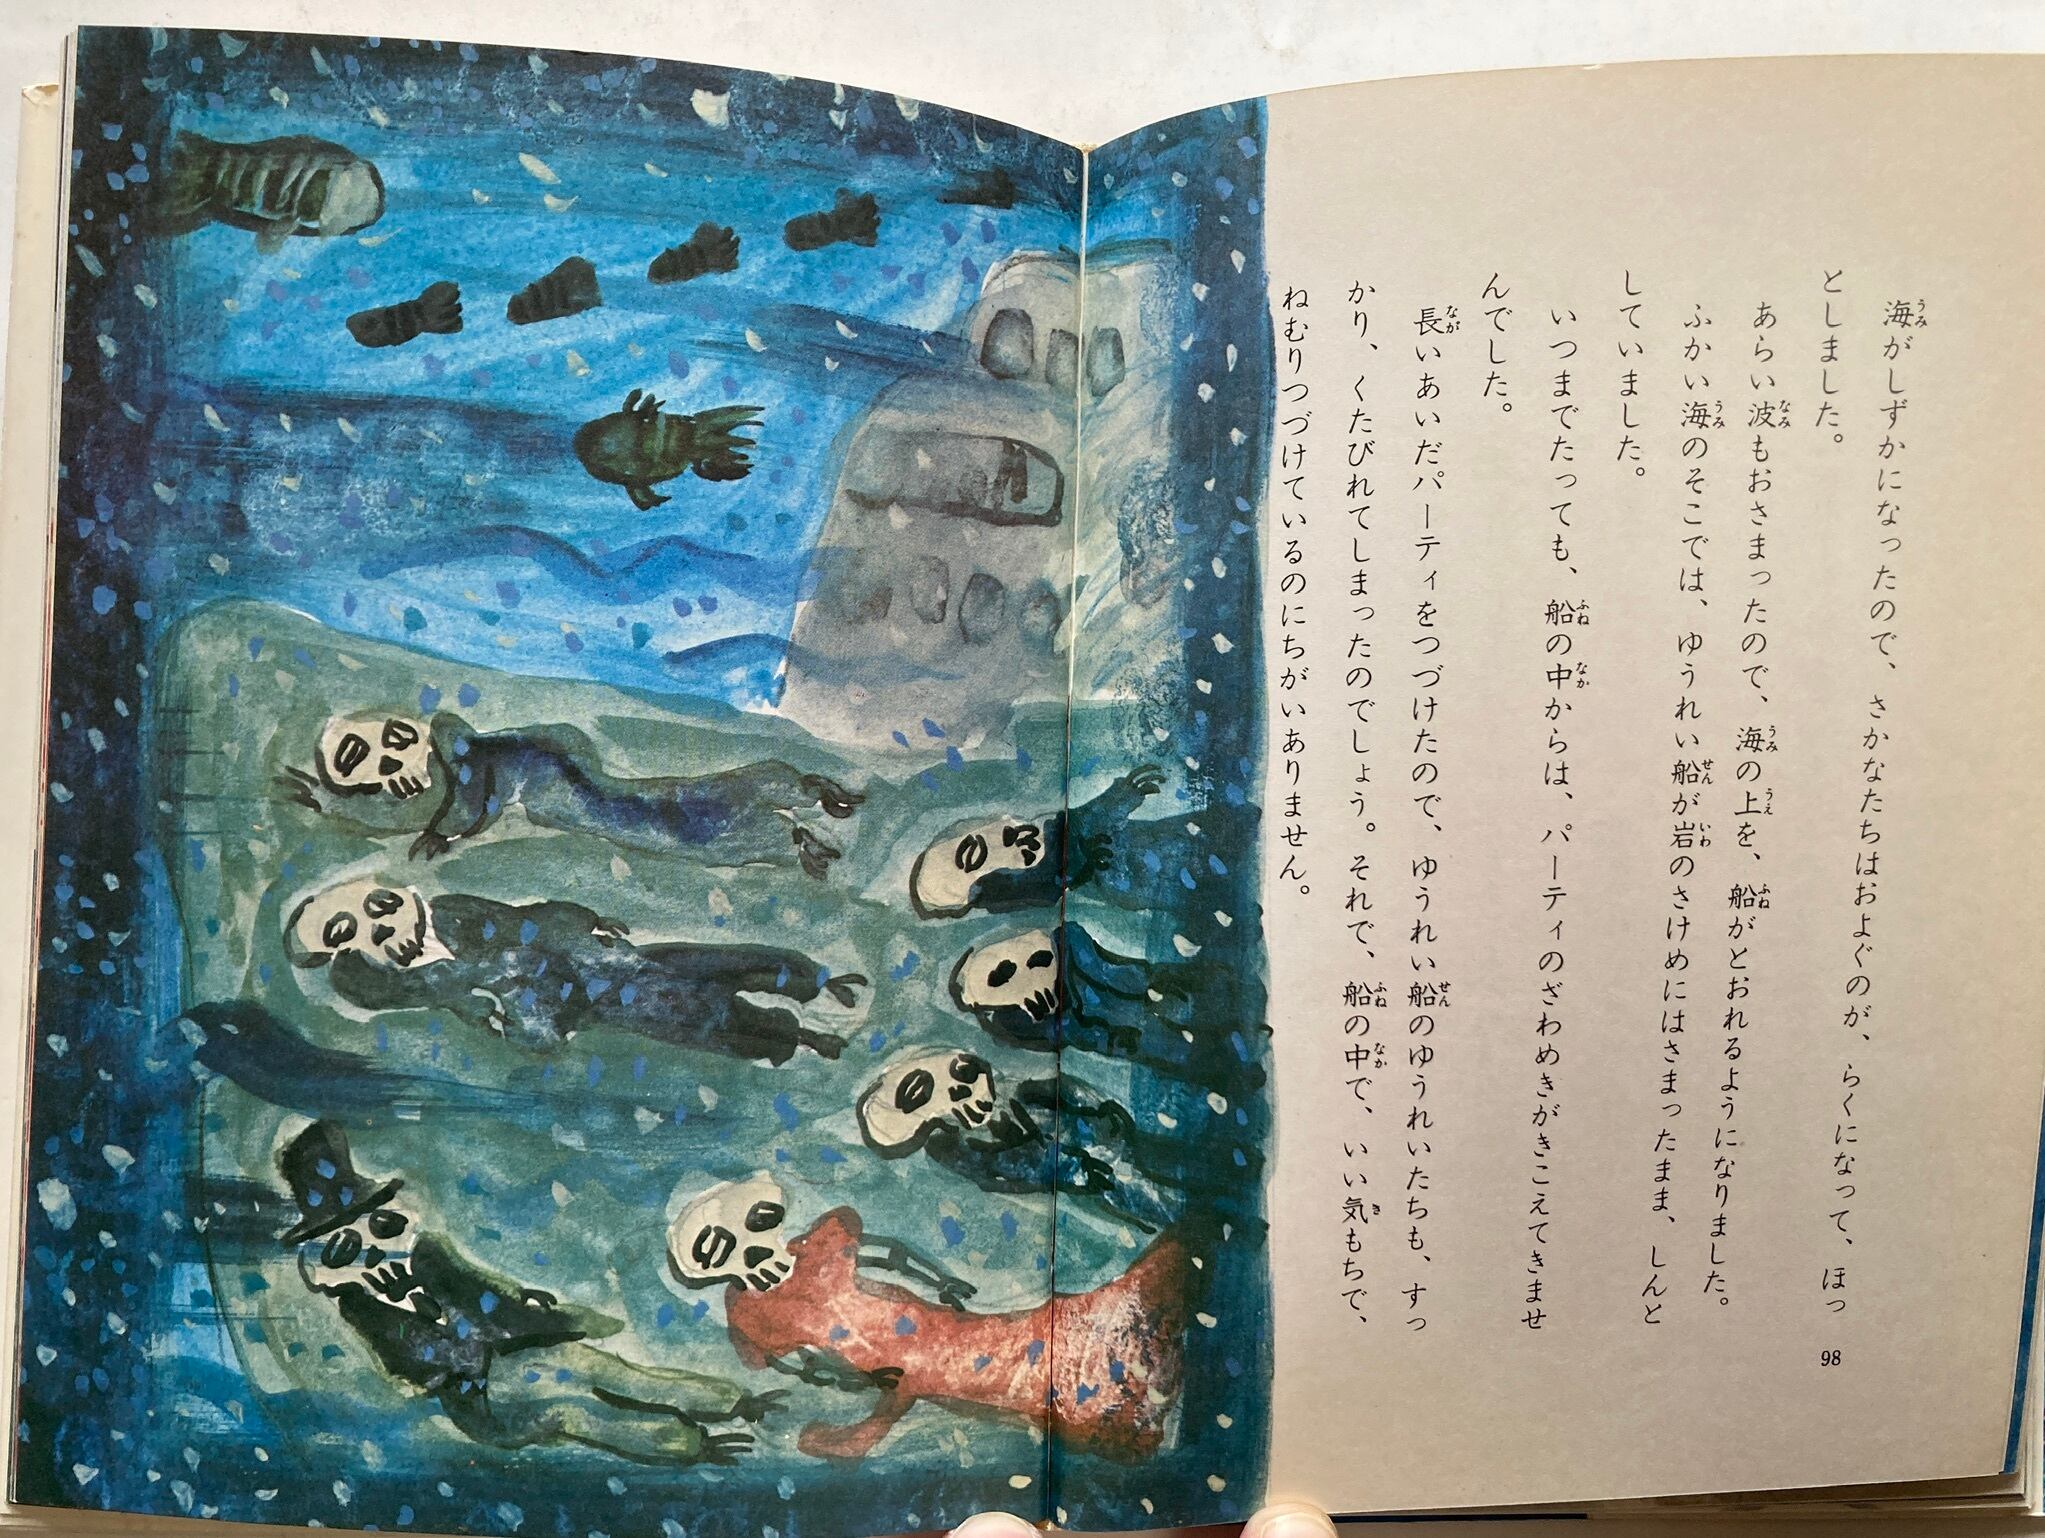 海がしずかになったので、さかなたちはおよぐのが、らくになって、ほっ
としました。
あらい波もおさまったので、海の上を、船がとおれるようになりました。
ふかい海のそこでは、ゆうれい船が岩のさけめにはさまったまま、しんと
していました。
いつまでたっても、船の中からは、パーティのざわめきがきこえてきませ
んでした。
長いあいだパーティをつづけたので、ゆうれい船のゆうれいたちも、すっ
かり、くたびれてしまったのでしょう。それで、船の中で、いい気もちで、
ねむりつづけているのにちがいありません。
98